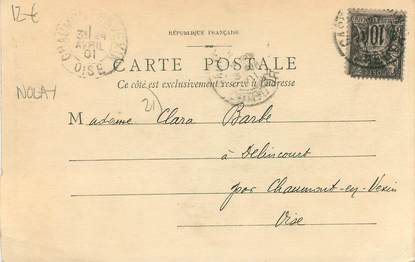 12€
RÉPUBLIQUE FRANÇAISE
CARTE POSTALE
Ce côté est exclusivement réservé à l'adresse
NOLAY
21
Madame Clara Barbe
à Delincourt
par Chaumont-en-Vexin
Oise
AVRIL
01
10